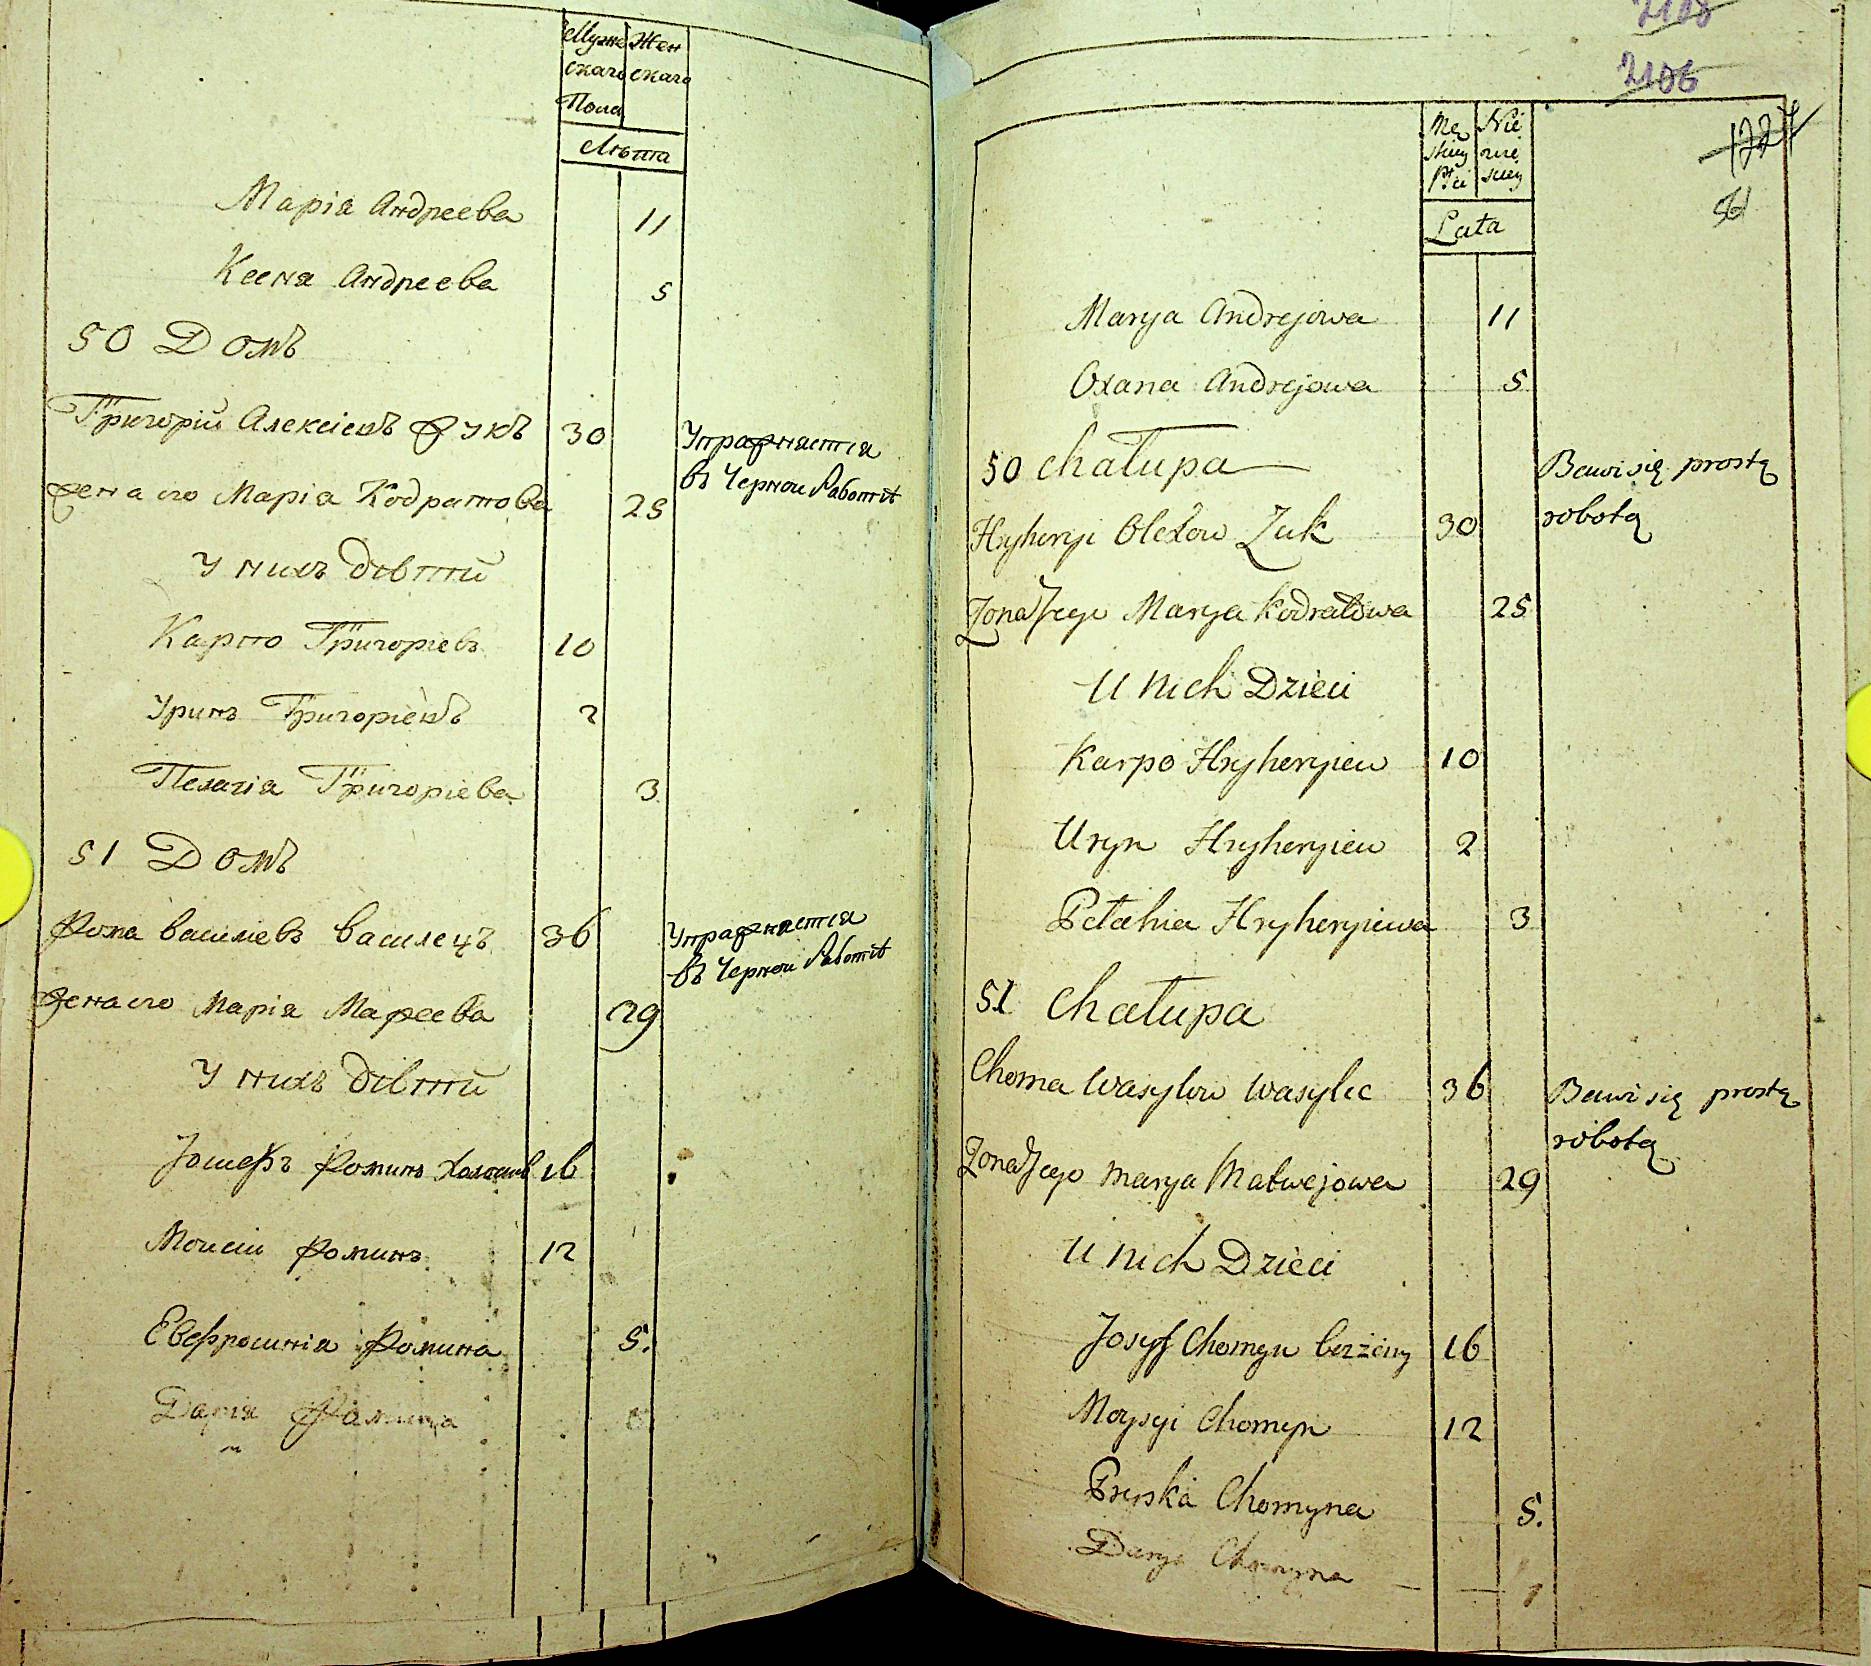 Муже Жен
скаго скаго
Пола
Лѣта
Марія Андреева 11
Ксеня Андреева 5
50 Домъ
Григорій Алексіевъ Жукъ 30 Упражняется
въ Черной Работѣ
жена его Марія Кодратова 25
У нихъ дѣтей
Карпо Григоріевъ 10
Уринъ Григоріевъ 2
Пелагія Григоріева 3
51 Домъ
Фома Василиевъ Василецъ 36 Упражняется
въ Черной Работѣ
жена его Марія Матѳеева 29
У нихъ дѣтей
Іосифъ Фоминъ Холостъ 16
Моисій Фоминъ 12
Евфросинія Фомина 5.
Дарія Фомина
2106
1227
Mę Nie
skiey wie
Płci skiey
Lata
Marya Andrejowa 11
Oxana Andrejowa 5
50 Chałupa Bawi się prostą
robotą
Hryhoryi Olexow Żuk 30
Żona Jego Marya Kodratowa 25
U nich Dzieci
Karpo Hryhoryiew 10
Uryn Hryhoryiew 2
Pełahia Hryhoryiewa 3
51 Chałupa
Choma Wasylow Wasylec 36 Bawi się prostą
robotą
Żona Jego Marya Matwejowa 29
U nich Dzieci
Josyf Chomyn bezżeny 16
Moysyi Chomyn 12
Pryska Chomyna 5.
Darya Chomyna 1